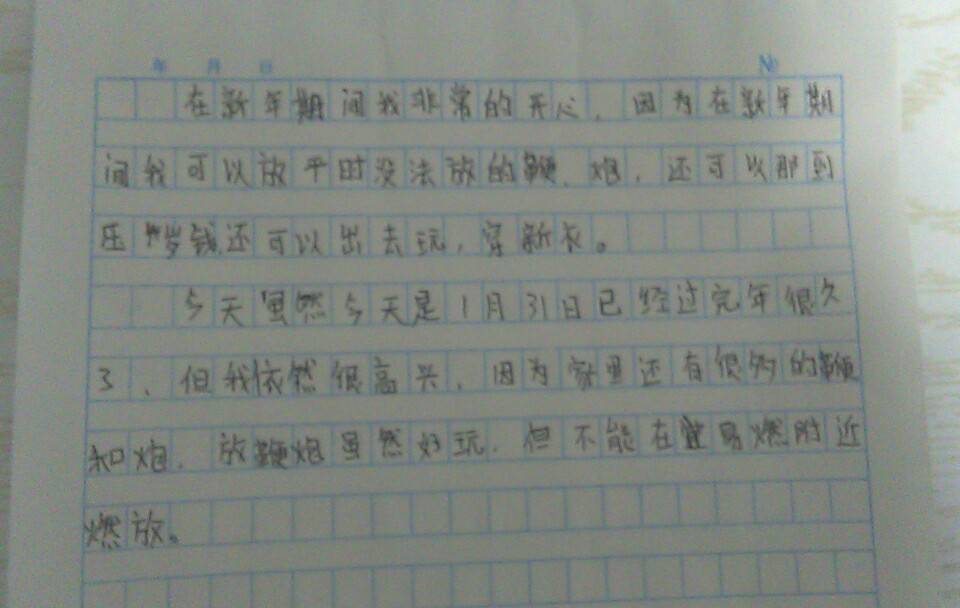 年 月 日 No
在新年期间我非常的开心，因为在新年期
间我可以放平时没法放的鞭、炮，还可以那到
压岁钱还可以出去玩，穿新衣。
今天虽然今天是1月31日已经过完年很久
了，但我依然很高兴，因为家里还有很多的鞭
和炮，放鞭炮虽然好玩，但不能在易燃附近
燃放。